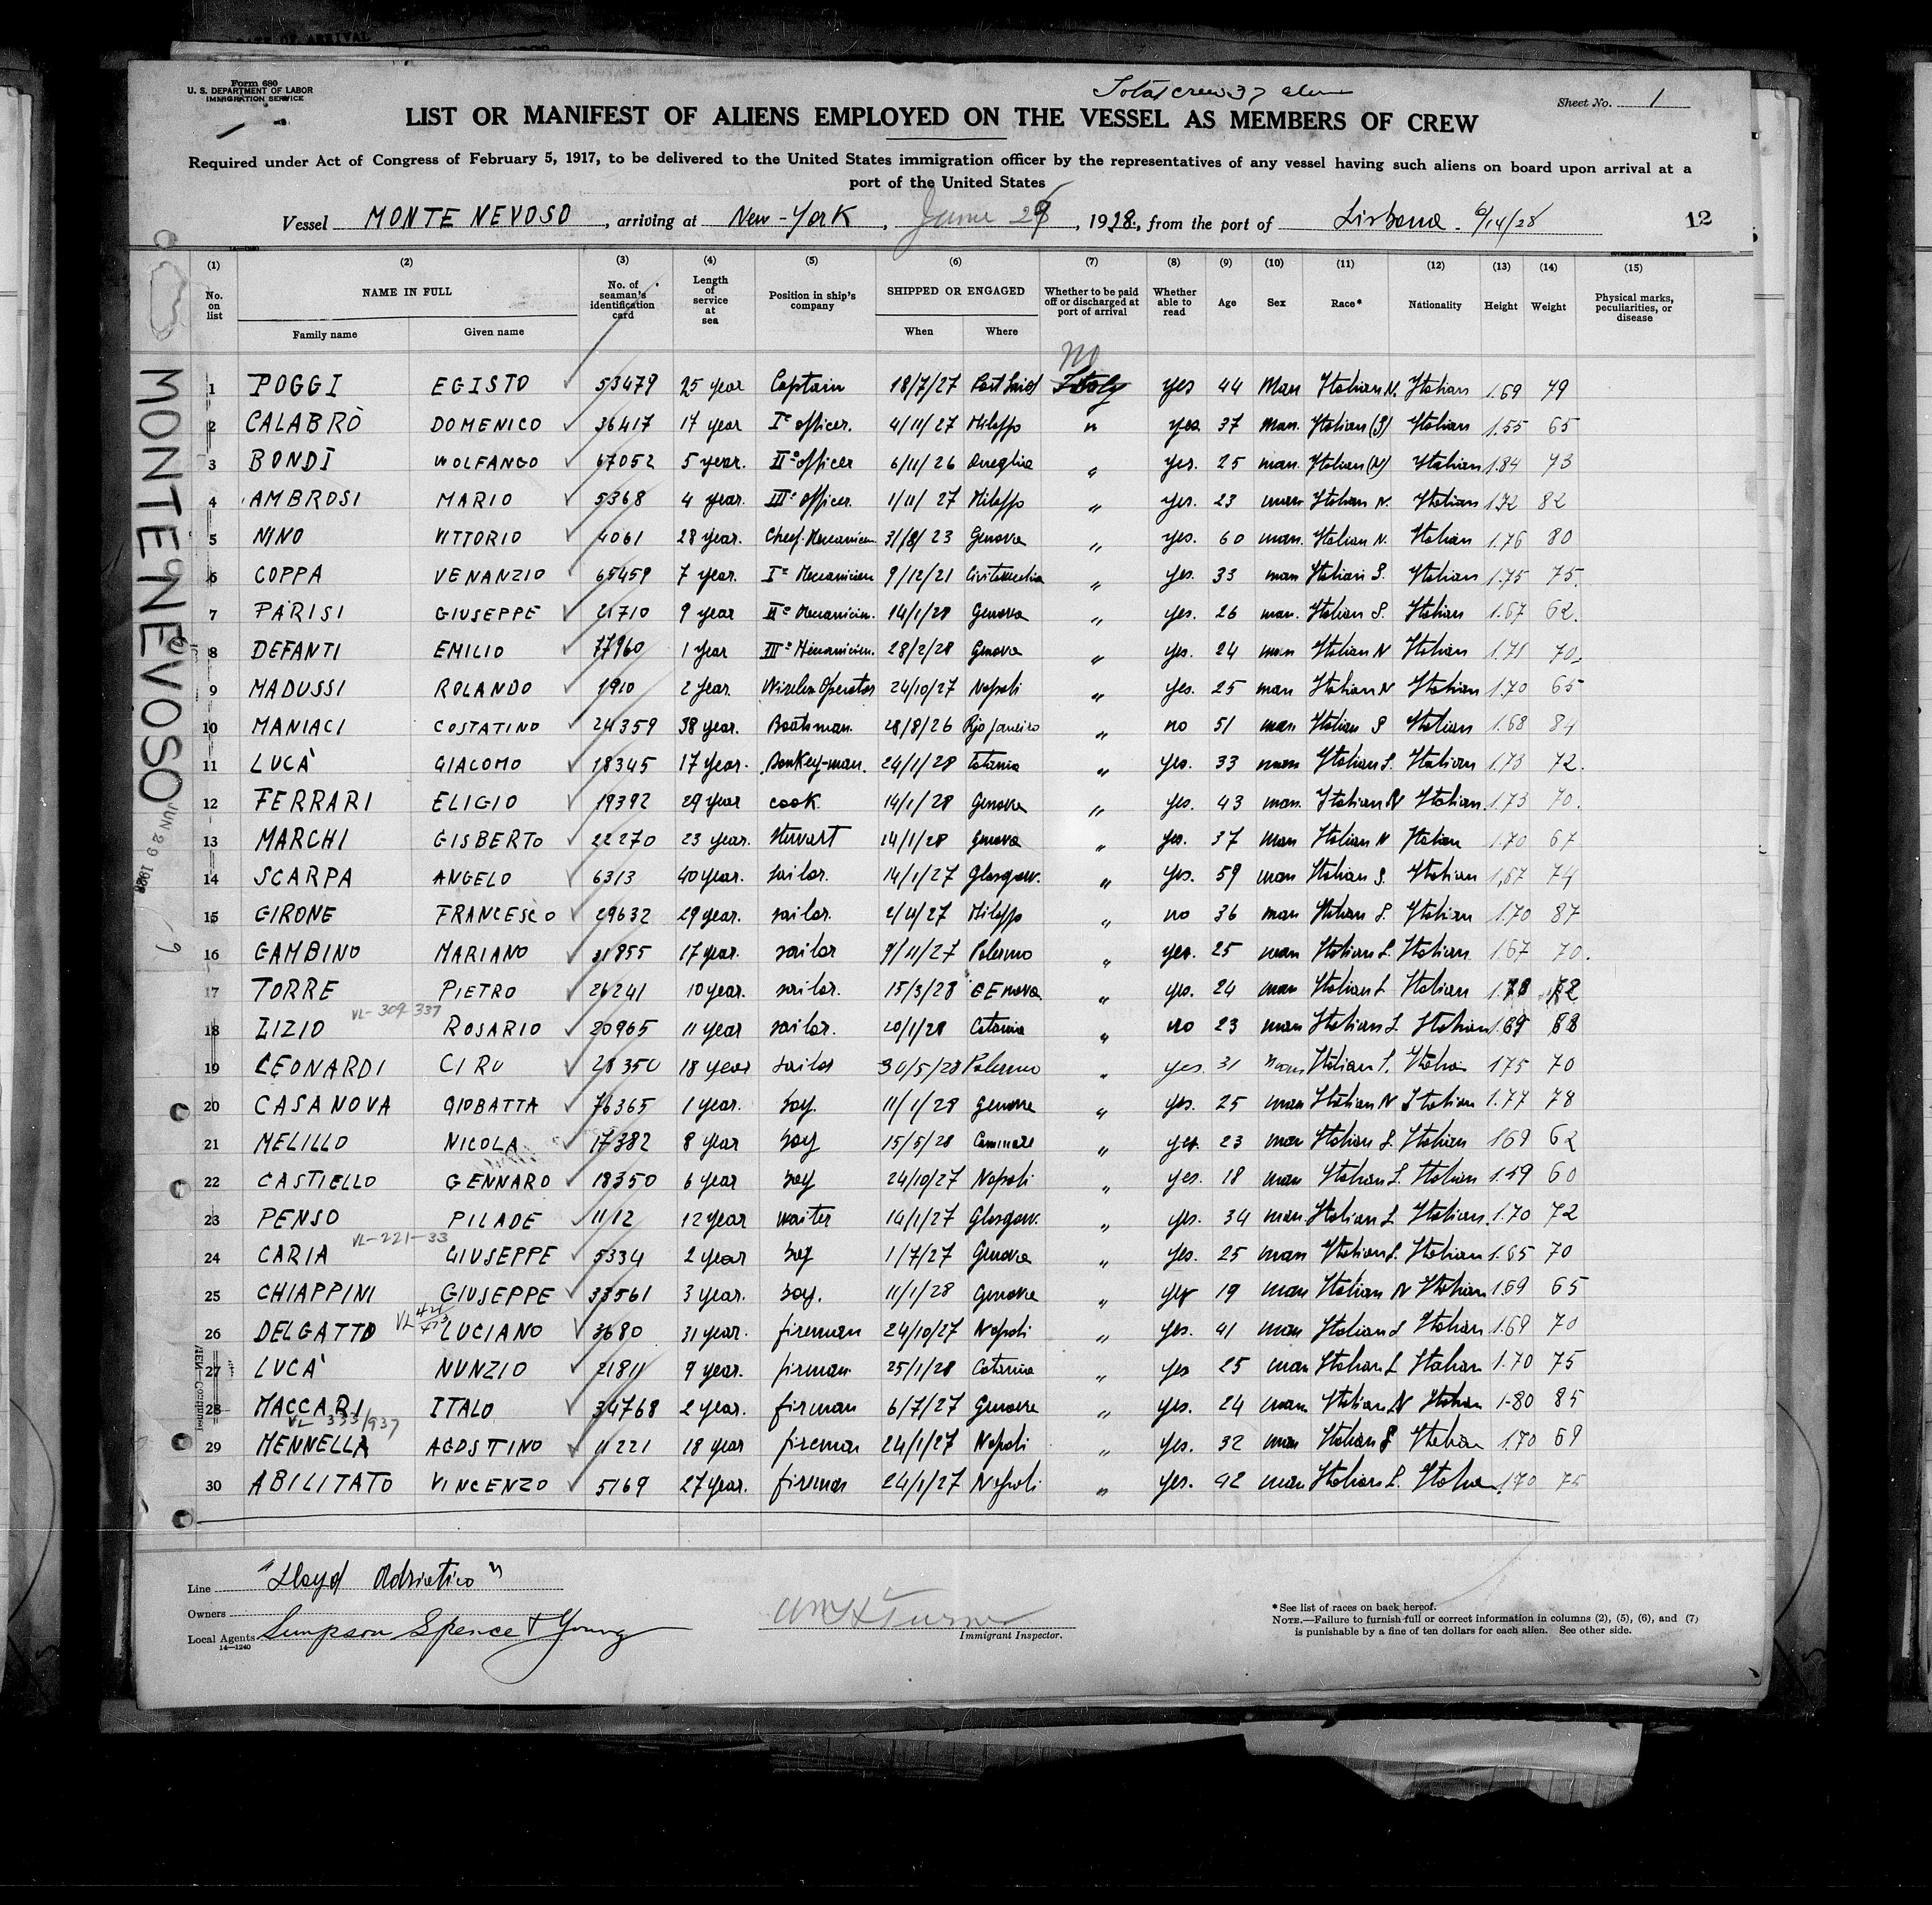 Form 680
U. S. DEPARTMENT OF LABOR
IMMIGRATION SERVICE
Total crew 37
Sheet No. 1
LIST OR MANIFEST OF ALIENS EMPLOYED ON THE VESSEL AS MEMBERS OF CREW
Required under Act of Congress of February 5, 1917, to be delivered to the United States immigration officer by the representatives of any vessel having such aliens on board upon arrival at a
port of the United States
Vessel MONTE NEVOSO, arriving at New-York, June 29, 1928, from the port of Lisbona. 6/14/28 12
(1) (2) (3) (4) (5) (6) (7) (8) (9) (10) (11) (12) (13) (14) (15)
No. on list NAME IN FULL Family name Given name No. of seaman's identification card Length of service at sea Position in ship's company SHIPPED OR ENGAGED When Where Whether to be paid off or discharged at port of arrival Whether able to read Age Sex Race* Nationality Height Weight Physical marks, peculiarities, or disease
No
1 POGGI EGISTO 53479 25 year Captain 18/7/27 Port Said Italy yes 44 Man Italian N. Italian 1.69 79
2 CALABRÒ DOMENICO 36417 17 year I° officer. 4/11/27 Milazzo " yes 37 man. Italian (S) Italian 1.55 65
3 BONDÌ WOLFANGO 67052 5 year. II° officer 6/11/26 Oneglia " yes. 25 man. Italian (N) Italian 1.84 73
4 AMBROSI MARIO 5368 4 year. III° officer 1/11/27 Milazzo " yes. 23 man Italian N. Italian 1.72 82
5 NINO VITTORIO 4061 28 year. 23 Genova " yes. 60 man. Italian N. Italian 1.76 80
6 COPPA VENANZIO 65459 7 year. I° Mecanicien 9/12/21 Civitavechia " yes. 33 man Italian S. Italian 1.75 75.
7 PARISI GIUSEPPE 21710 9 year II° Mecanicien. 14/1/28 Genova " yes. 26 man. Italian S. Italian 1.67 62.
8 DEFANTI EMILIO 77960 1 year III° Mecanicien. 28/2/28 Genova " yes. 24 man Italian N Italian 1.71 70.
9 MADUSSI ROLANDO 1910 2 year. Wireless Operator 24/10/27 Napoli " yes. 25 man Italian N Italian 1.70 65
10 MANIACI COSTATINO 24359 38 year. Boatsman. 28/8/26 Rjo Janeiro " no 51 man Italian S Italian 1.68 84
11 LUCÀ GIACOMO 18345 17 year. Donkey-man. 24/1/28 Catania " yes. 33 man Italian S. Italian 1.73 72.
12 FERRARI ELIGIO 19392 29 year cook. 14/1/28 Genova " yes. 43 man. Italian N Italian 1.73 70.
13 MARCHI GISBERTO 22270 23 year. Stewart 14/1/28 Genova " yes. 37 man Italian N Italian 1.70 67
14 SCARPA ANGELO 6313 40 year. sailor. 14/1/27 Glasgow. " yes. 59 man Italian S. Italian 1,67 74
15 GIRONE FRANCESCO 29632 29 year. sailor. 27 Milazzo " no 36 man Italian S. Italian 1.70 87
16 GAMBINO MARIANO 31855 17 year. sailor 9/11/27 Palermo " yes. 25 man Italian S. Italian 1.67 70.
17 TORRE PIETRO 26241 10 year. sailor. 15/3/28 GEnova " yes. 24 man Italian S Italian
VL-309 337
18 ZIZIO ROSARIO 20965 11 year sailor. 20/1/28 Catania " no 23 man Italian S Italian 1.69
19 LEONARDI CIRO 28350 18 year sailor 30/5/28 Palermo " yes. 31 man Italian S. Italian 175 70
20 CASANOVA GIOBATTA 76365 1 year. boy. 11/1/28 genova " yes. 25 man Italian N Italian 1.77 78
21 MELILLO NICOLA 17382 8 year boy 15/5/28 " yes. 23 man Italian S. Italian 169 62
22 CASTIELLO GENNARO 18350 6 year boy 24/10/27 Napoli " yes. 18 man Italian S. Italian 1.59 60
23 PENSO PILADE 1112 12 year waiter 14/1/27 Glasgow. " yes. 34 man. Italian S Italian 1.70 72
VL-221-33
24 CARIA GIUSEPPE 5334 2 year boy 1/7/27 Genova " yes. 25 man Italian S. Italian 1.65 70
25 CHIAPPINI GIUSEPPE 33561 3 year. boy. 11/1/28 Genova " yes 19 man Italian N Italian 169 65
26 DELGATTO LUCIANO 3680 31 year. fireman 24/10/27 Napoli " yes. 41 man Italian S Italian 1.69 70
27 LUCÀ NUNZIO 21811 9 year. fireman 25/1/28 Catania " yes 25 man Italian S Italian 1.70 75
28 MACCARI ITALO 34768 2 year. firman 6/7/27 Genova " yes. 24 man Italian N Italian 1-80 85
VL 333/937
29 MENNELLA AGOSTINO 11221 18 year fireman 24/1/27 Napoli " yes. 32 man Italian S Italian 170 69
30 ABILITATO VINCENZO 5169 27 year. fireman 24/1/27 Napoli " yes. 42 man Italian S. Italian 170 75
MONTE NEVOSO
JUN 29 1928
Line "Lloyd Adriatico"
Owners
Local Agents Simpson Spence & Young
14-1240
Wm H Turner
Immigrant Inspector.
*See list of races on back hereof.
NOTE.—Failure to furnish full or correct information in columns (2), (5), (6), and (7)
is punishable by a fine of ten dollars for each alien. See other side.